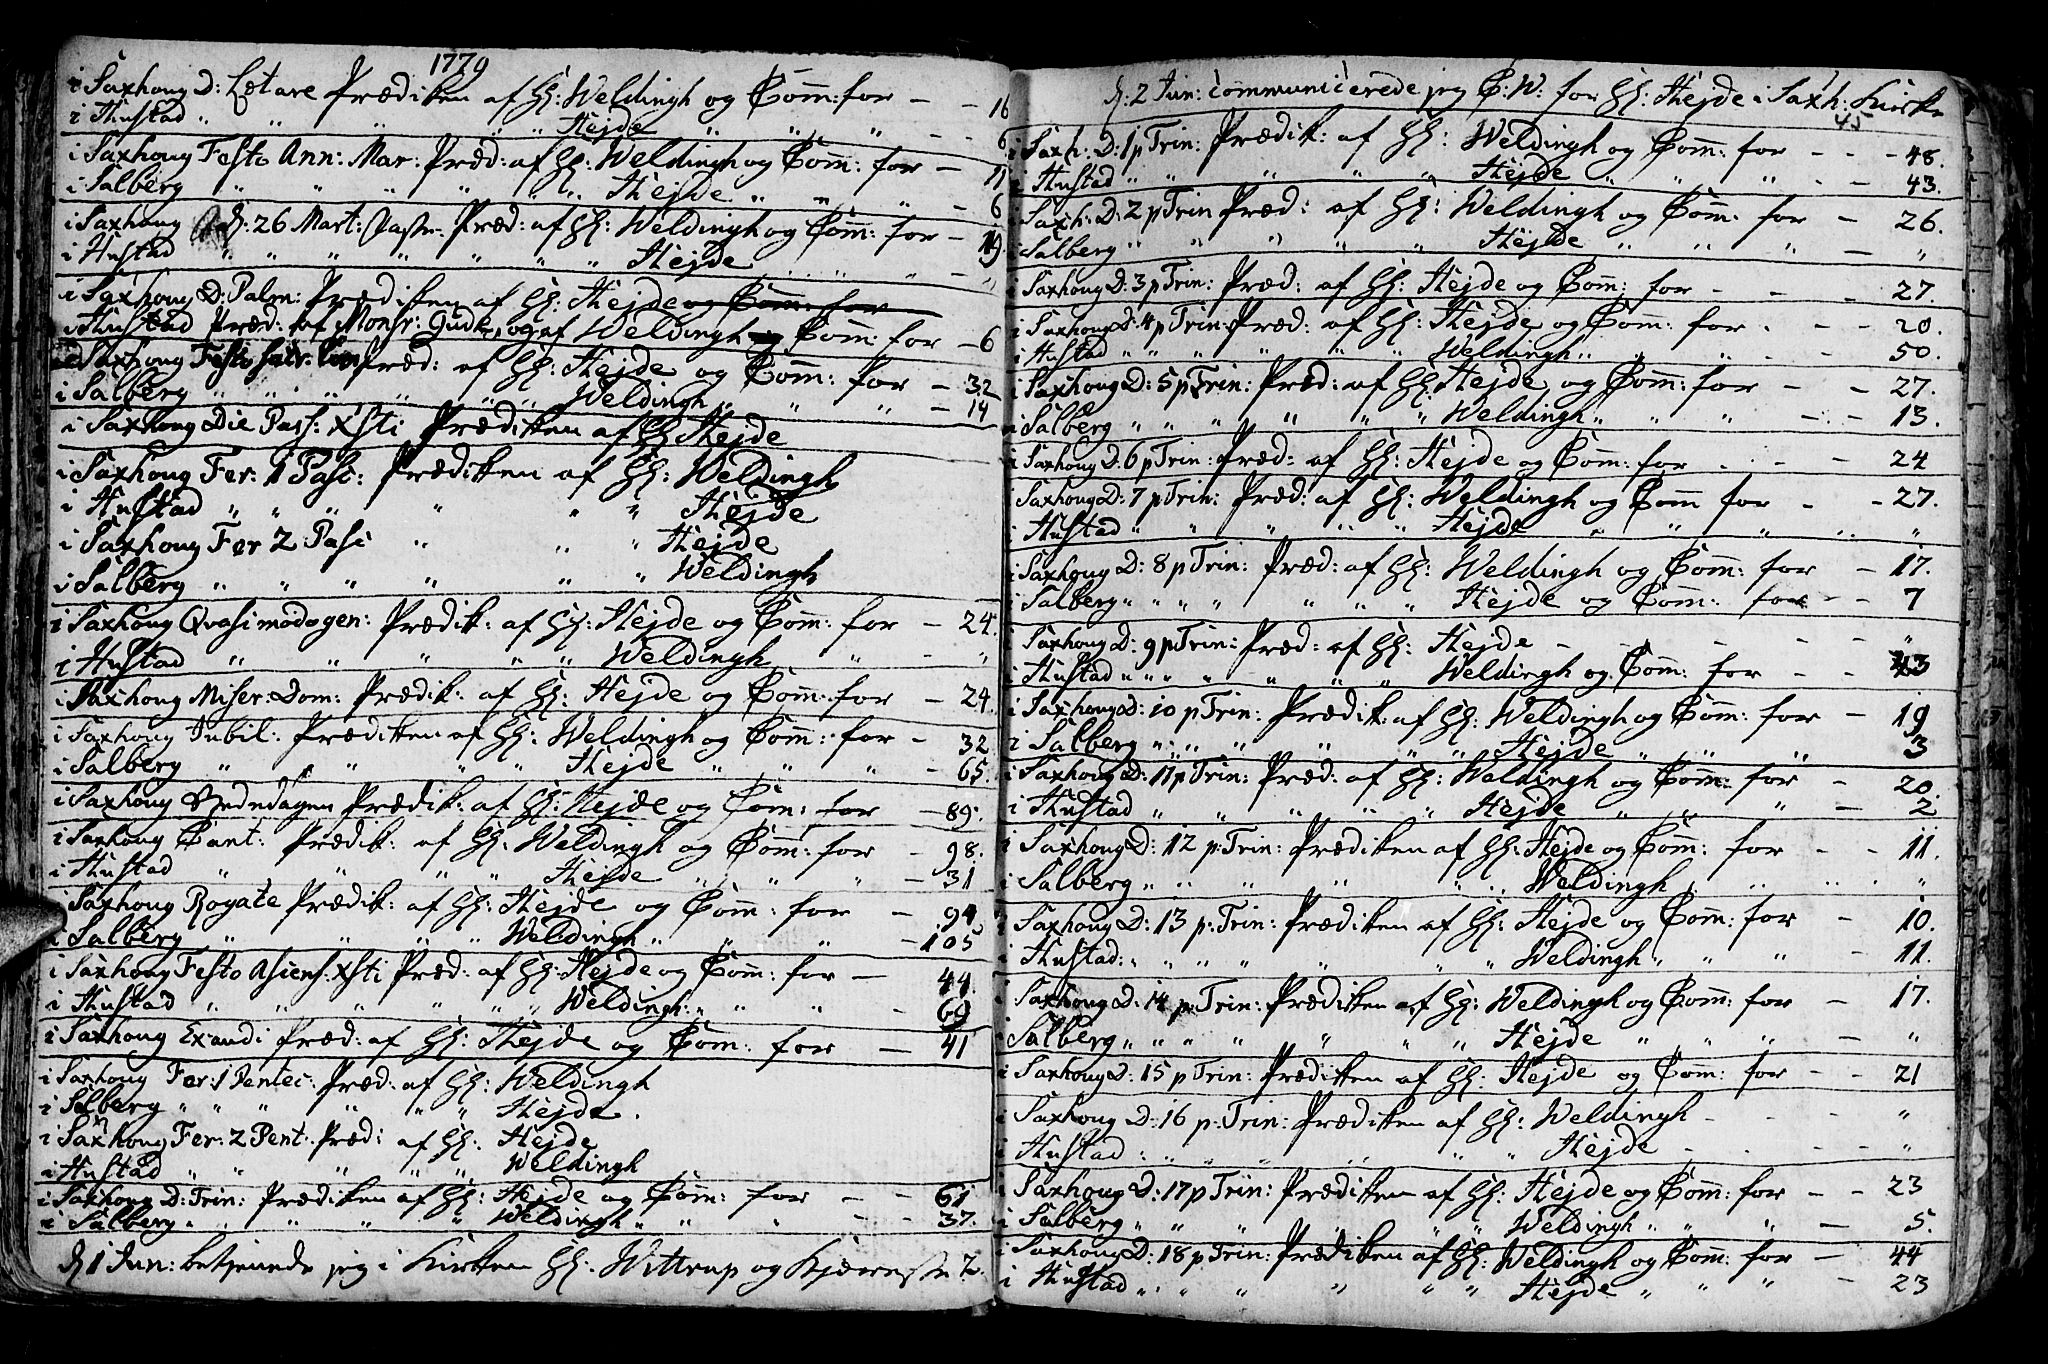 1779
i Saxhoug D: Lætare Prædiken af Hr: Weldingh og Com̅: for - - 16
i Hustad " " " " " Hejde " " " - - 6
i Saxhoug Festo Ann: Mar: Præd: af Hr: Weldingh og Com̅: for - 11
i Salberg " " " " " " Hejde " " " - 6
i Saxhoug d: 26 Mart: Præd: af Hr: Weldingh og Com̅: for - 19
i Hustad " " " " " " " Hejde " " " - "
i Saxhoug D: Palm: Prædiken af Hr: Hejde og Com̅: for
i Hustad Præd: af Monsr: Gudke, og af Weldingh og Com̅: for - 6
i Saxhoug Festo Præd: af Hr: Hejde og Com̅: for - 32
i Salberg " " " " " " Weldingh " " " - 14
i Saxhoug Die Pass: Xsti Prædiken af Hr Hejde
i Saxhoug Fer: 1 Pasc: Prædiken af Hr: Weldingh
i Hustad " " " " " " Hejde
i Saxhoug Fer 2 Pasc " " " Hejde
i Salberg " " " " " " Weldingh
i Saxhoug Qvasimodogen: Prædik: af Hr: Hejde og Com̅: for - 24.
i Hustad " " " " " Weldingh " " - "
i Saxhoug Miser: Dom: Prædik: af Hr: Hejde og Com̅: for - 24.
i Saxhoug Jubil: Prædiken af Hr: Weldingh og Com̅: for - 32.
i Salberg " " " " Hejde " " " - 65.
i Saxhoug Bededagen Prædik: af Hr: Hejde og Com̅: for - 89.
i Saxhoug Cant: Prædik: af Hr: Weldingh og Com̅: for - 98.
i Hustad " " " " Hejde " " " - 31
i Saxhoug Rogate Prædik: af Hr: Hejde og Com̅: for - 94.
i Salberg " " " " Weldingh " " " - 105
i Saxhoug Festo Asiens: Xsti Præd: af Hr: Hejde og Com̅: for - 44.
i Hustad " " " " " " " Weldingh: " " " - 69
i Saxhoug Exaudi Præd: af Hr: Hejde og Com̅: for - 41
i Saxhoug Fer: 1 Pentec: Præd: af Hr: Weldingh
i Salberg " " " " " " Hejde.
i Saxhoug Fer: 2 Pent: Præd: af Hr: Hejde
i Hustad " " " " " Weldingh
i Saxhoug D: Trin: Prædiken af Hr: Hejde og Com̅: for - - 61
i Salberg " " " " " Weldingh " " " - - 37.
d 1 Jun: betjenede jeg i Kirken Hr. Wittrup og Kjæreste 2.
d. 2 Jun: communicerede jeg C: W: for Hr: Hejde i Saxh: Kirke
45
i Saxh: D: 1 p Trin: Prædik: af Hr: Weldingh og Com̅: for - - - 48.
i Hustad " " " " " Hejde " " " - - 43.
i Saxh: D: 2 p Trin Præd: af Hr: Weldingh og Com̅: for - 26.
i Salberg " " " " " Hejde " " " - "
i Saxhoug D: 3 p Trin: Præd: af Hr: Hejde og Com̅: for - - - 27.
i Saxhoug D: 4 p Trin: Præd: af Hr: Hejde og Com̅: for - - - 20.
i Hustad " " " " " " Weldingh " " " - - 50.
i Saxhoug D: 5 p Trin: Præd: af Hr: Hejde og Com̅: for - - 27.
i Salberg " " " " " " Weldingh " " " - - 13.
i Saxhoug D: 6 p Trin: Præd: af Hr: Hejde og Com̅: for - - - 24
i Saxhoug D: 7 p Trin: Præd: af Hr: Weldingh og Com̅ for - - 27.
i Hustad " " " " " Hejde " " " " "
i Saxhoug D: 8 p Trin: Præd: af Hr: Weldingh og Com̅: for - 17.
i Salberg " " " " " " " Hejde og Com̅: for - - 7
i Saxhoug D: 9 p Trin: Præd: af Hr: Hejde - - - - - "
i Hustad " " " " " " " Weldingh og Com̅: for - - 43
i Saxhoug D: 10 p Trin: Prædik: af Hr: Weldingh og Com̅: for - 19
i Salberg " " " " " " Hejde " " " 3
i Saxhoug D: 11 p Trin: Præd: af Hr: Weldingh og Com̅: for - 20.
i Hustad " " " " " Hejde " " " - 2
i Saxhoug D: 12 p: Trin: Prædiken af Hr: Hejde og Com̅: for - - 11.
i Salberg " " " " " " Weldingh " " " "
i Saxhoug D: 13 p: Trin: Prædiken af Hr: Hejde og Com̅: for - 10.
i Hustad: " " " " " " " Weldingh " " " - 11.
i Saxhoug D: 14 p: Trin: Prædiken af Hr: Weldingh og Com̅: for - 17.
i Salberg " " " " " " " Hejde " " " - "
i Saxhoug D: 15 p Trin: Prædiken af Hr: Hejde og Com̅: for - - 21
i Saxhoug D: 16 p: Trin: Prædiken af Hr: Weldingh - - - "
i Hustad " " " " " " Hejde - - - "
i Saxhoug D: 17 p Trin: Prædiken af Hr: Hejde og Com̅: for - - 23
i Salberg " " " " " " Weldingh " " " - 5.
i Saxhoug D: 18 p Trin: Prædiken af Hr: Weldingh og Com̅: for - 44
i Hustad " " " " " " Hejde " " " - 23